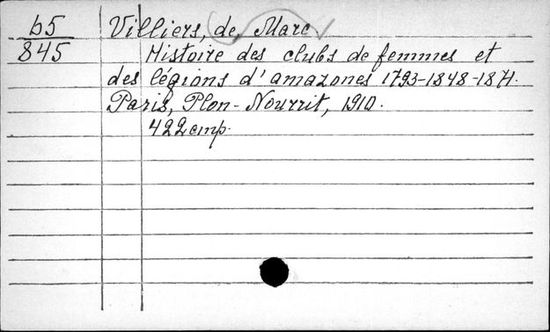 b5
845
Villiers, de, Marc
Histoire des clubs de femmes et
des légions d'amazones 1793-1848-1871.
Paris, Plon-Nourrit, 1910.
422 стр.